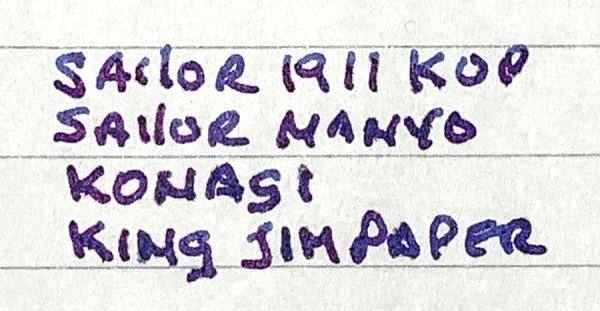 SAilOR 1911 KOP
SAilOR MANYO
KONAGI
KINg JIM PAPER